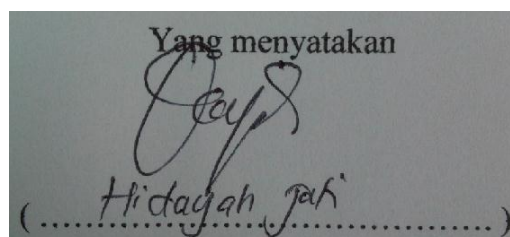 Yang menyatakan
(Hidayah Jati)